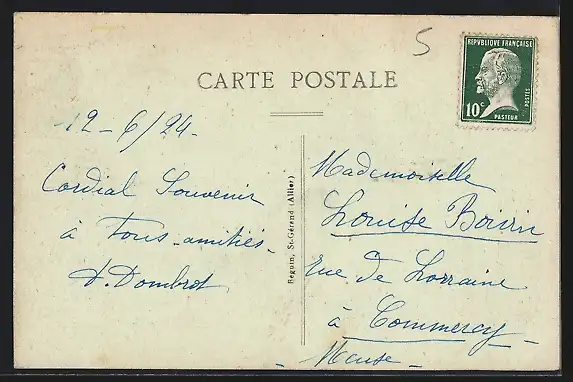 5
REPUBLIQUE FRANÇAISE
10c
POSTES
PASTEUR
CARTE POSTALE
12-6/24-
Cordial Souvenir
à Tous - amitiés -
A. Dombrot
Beguin, St-Gérand (Allier)
Mademoiselle
Louise Boivin
Rue de Lorraine
à Commercy -
- Meuse -